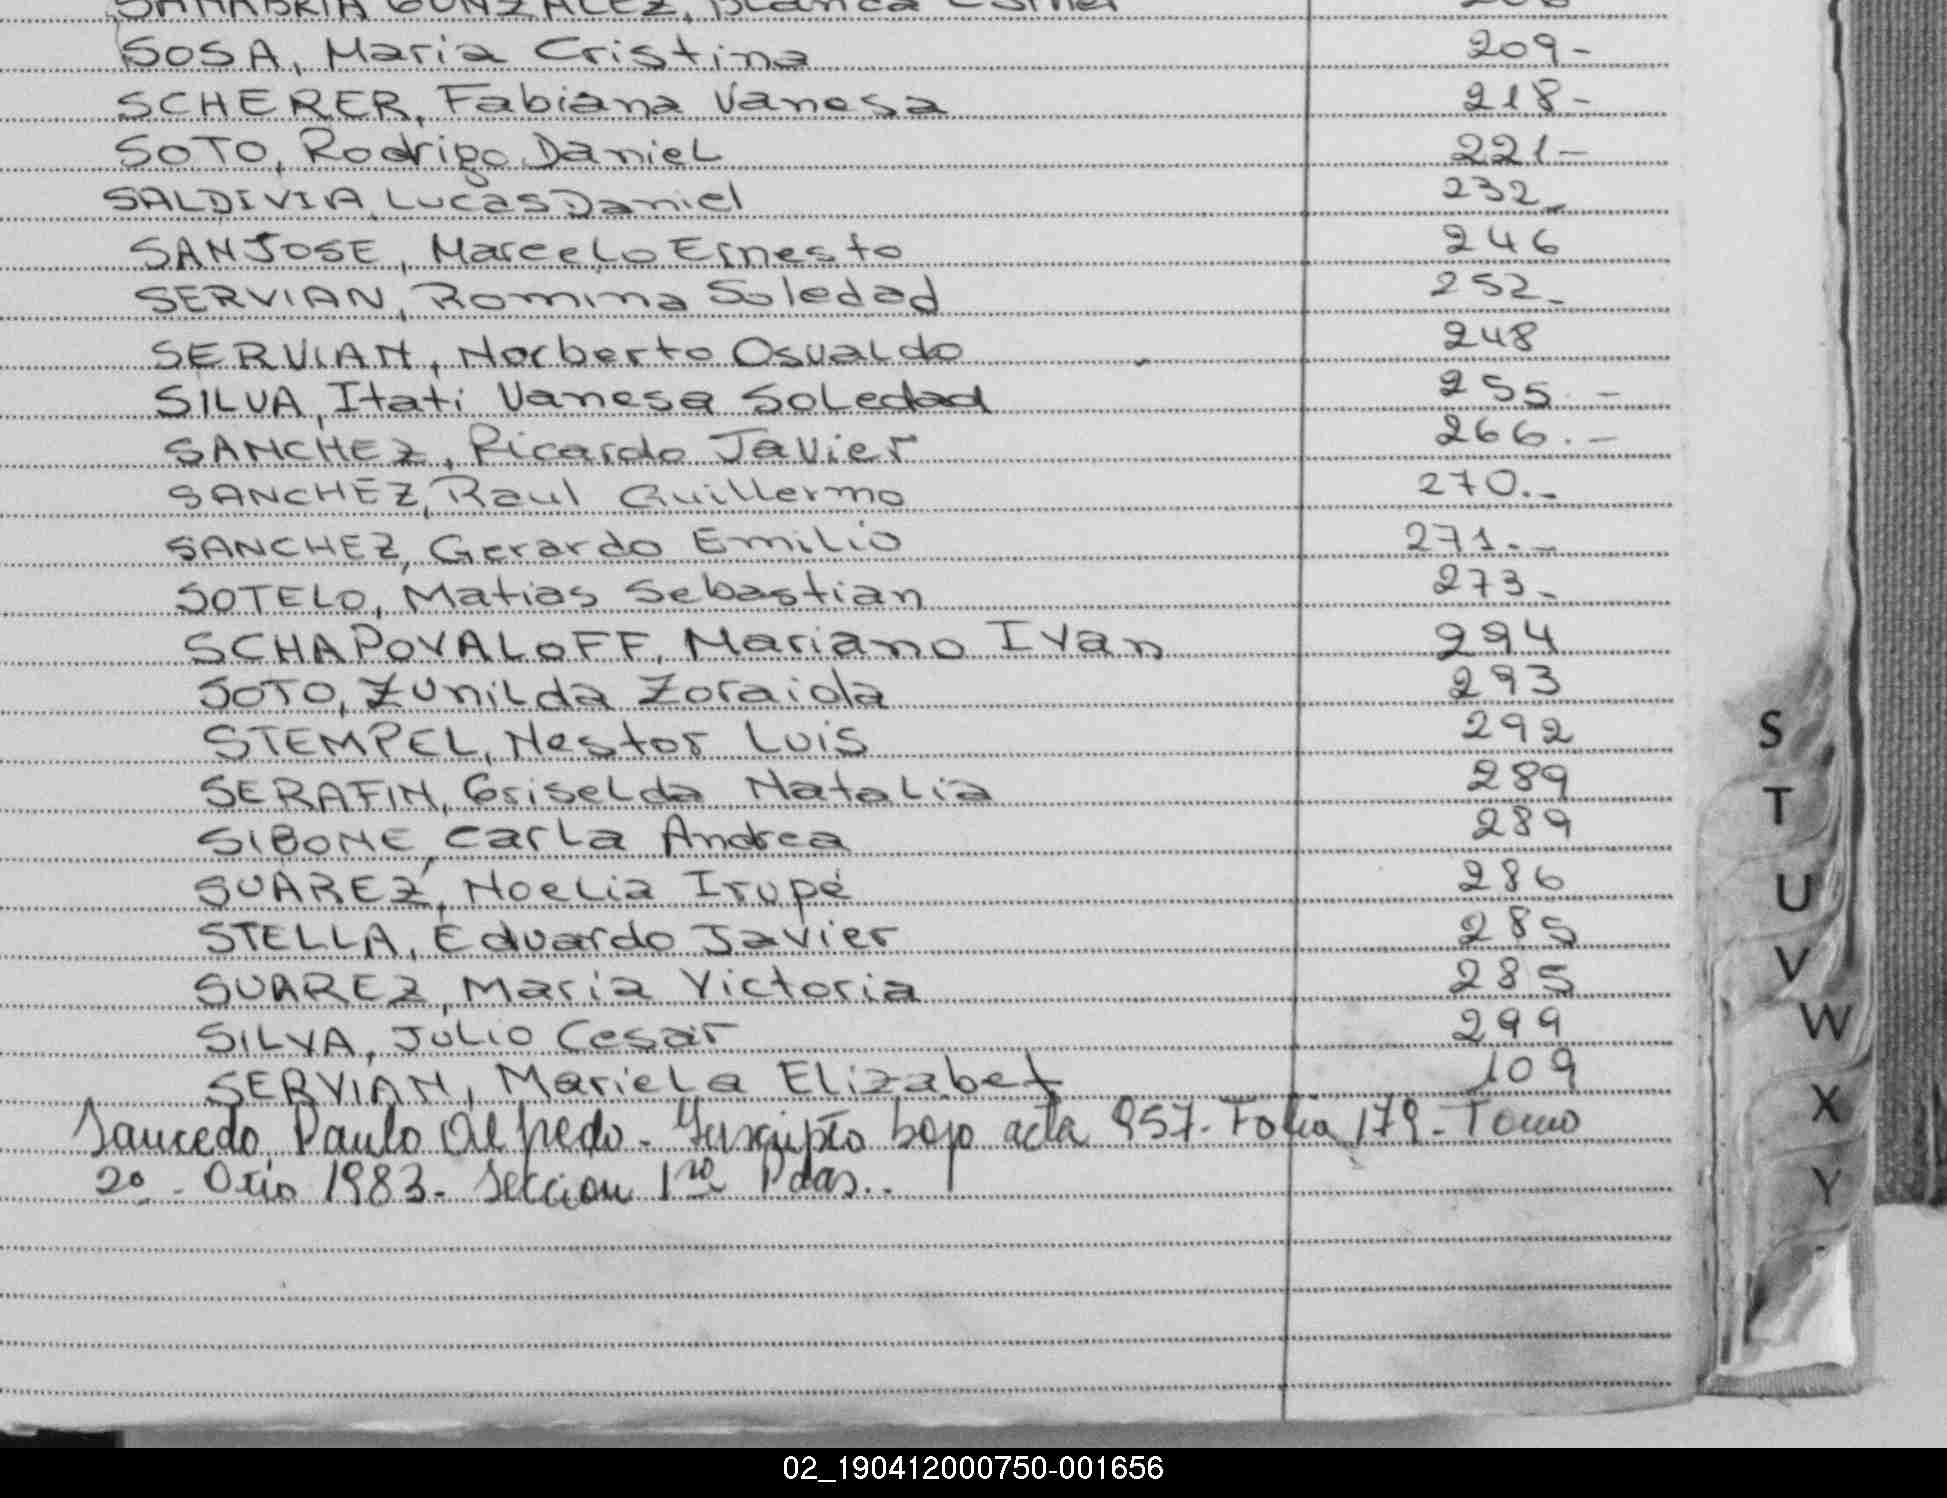 SANABRIA GONZALEZ, Blanca Esther 208
SOSA, Maria Cristina 209-
SCHERER, Fabiana Vanesa 218-
SOTO, Rodrigo Daniel 221-
SALDIVIA, Lucas Daniel 232-
SANJOSE, Marcelo Ernesto 246
SERVIAN, Romina Soledad 252-
SERVIAN, Norberto Osvaldo 248
SILVA, Itati Vanesa Soledad 255.-
SANCHEZ, Ricardo Javier 266.-
SANCHEZ, Raul Guillermo 270.-
SANCHEZ, Gerardo Emilio 271.-
SOTELO, Matias Sebastian 273-
SCHAPOVALOFF, Mariano Ivan 294
SOTO, Zunilda Zoraida 293
STEMPEL, Nestor Luis 292
SERAFIN, Griselda Natalia 289
SIBONE, Carla Andrea 289
SUAREZ, Noelia Irupé 286
STELLA, Eduardo Javier 285
SUAREZ, Maria Victoria 285
SILVA, Julio Cesar 299
SERVIAN, Mariela Elizabet 109
Saucedo, Paulo Alfredo - Inscripto bajo acta 957. Folia 179 - Tomo
2º - Año 1983 - Seccion 1ra Pdas..
S
T
U
V
W
X
Y
02_190412000750-001656